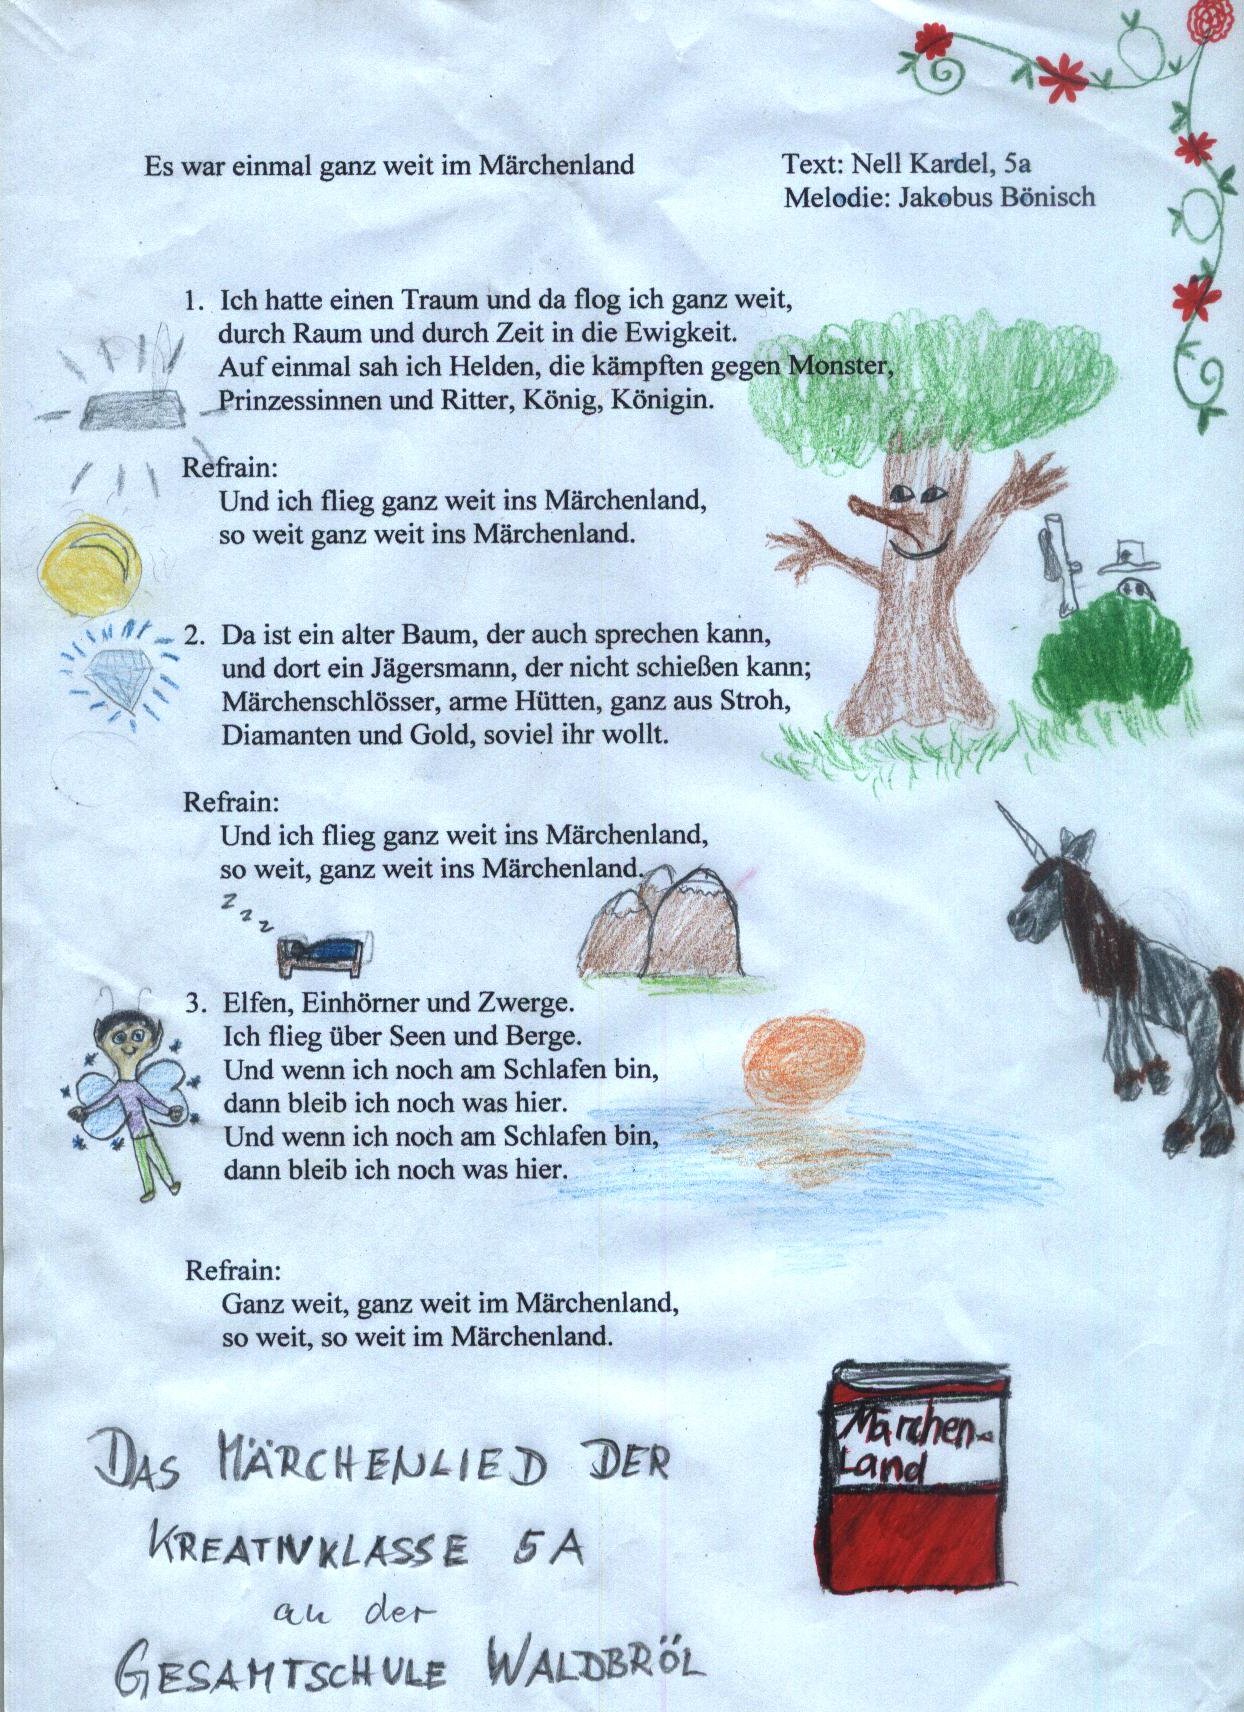 Es war einmal ganz weit im Märchenland
Text: Nell Kardel, 5a
Melodie: Jakobus Bönisch
1. Ich hatte einen Traum und da flog ich ganz weit,
durch Raum und durch Zeit in die Ewigkeit.
Auf einmal sah ich Helden, die kämpften gegen Monster,
Prinzessinnen und Ritter, König, Königin.
Refrain:
Und ich flieg ganz weit ins Märchenland,
so weit ganz weit ins Märchenland.
2. Da ist ein alter Baum, der auch sprechen kann,
und dort ein Jägersmann, der nicht schießen kann;
Märchenschlösser, arme Hütten, ganz aus Stroh,
Diamanten und Gold, soviel ihr wollt.
Refrain:
Und ich flieg ganz weit ins Märchenland,
so weit, ganz weit ins Märchenland.
z z z
3. Elfen, Einhörner und Zwerge.
Ich flieg über Seen und Berge.
Und wenn ich noch am Schlafen bin,
dann bleib ich noch was hier.
Und wenn ich noch am Schlafen bin,
dann bleib ich noch was hier.
Refrain:
Ganz weit, ganz weit im Märchenland,
so weit, so weit im Märchenland.
Märchen-
Land
DAS MÄRCHENLIED DER
KREATIVKLASSE 5A
an der
GESAMTSCHULE WALDBRÖL